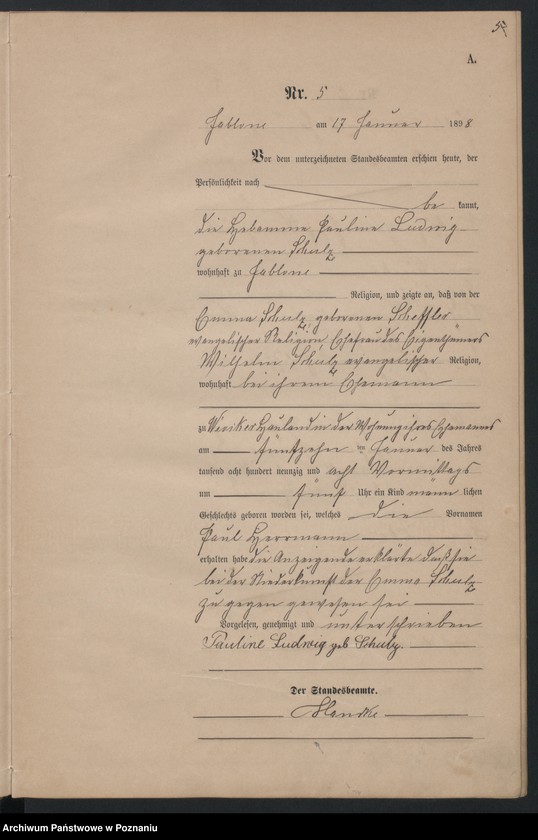 5
A.
Nr. 5
Jablone am 17 Januar 1898
Vor dem unterzeichneten Standesbeamten erschien heute, der
Persönlichkeit nach
be kannt,
die Hebamme Pauline Ludwig
geborenen Schulz
wohnhaft zu Jablone
Religion, und zeigte an, daß von der
Emma Schulz, geborenen Scheffler
evangelischer Religion Ehefrau des Eigenthümers
Wilhelm Schulz evangelischer Religion,
wohnhaft bei ihrem Ehemann
zu Hauland in der Wohnung ihres Ehemannes
am fünfzehn ten Januar des Jahres
tausend acht hundert neunzig und acht Vormittags
um fünf Uhr ein Kind männ lichen
Geschlechts geboren worden sei, welches die Vornamen
Paul Herrmann
erhalten habe die Anzeigende erklärte daß sie
bei der Niederkunft der Emma Schulz
zu gegen gewesen sei
Vorgelesen, genehmigt und unterschrieben
Pauline Ludwig geb Schulz.
Der Standesbeamte.
Archiwum Państwowe w Poznaniu